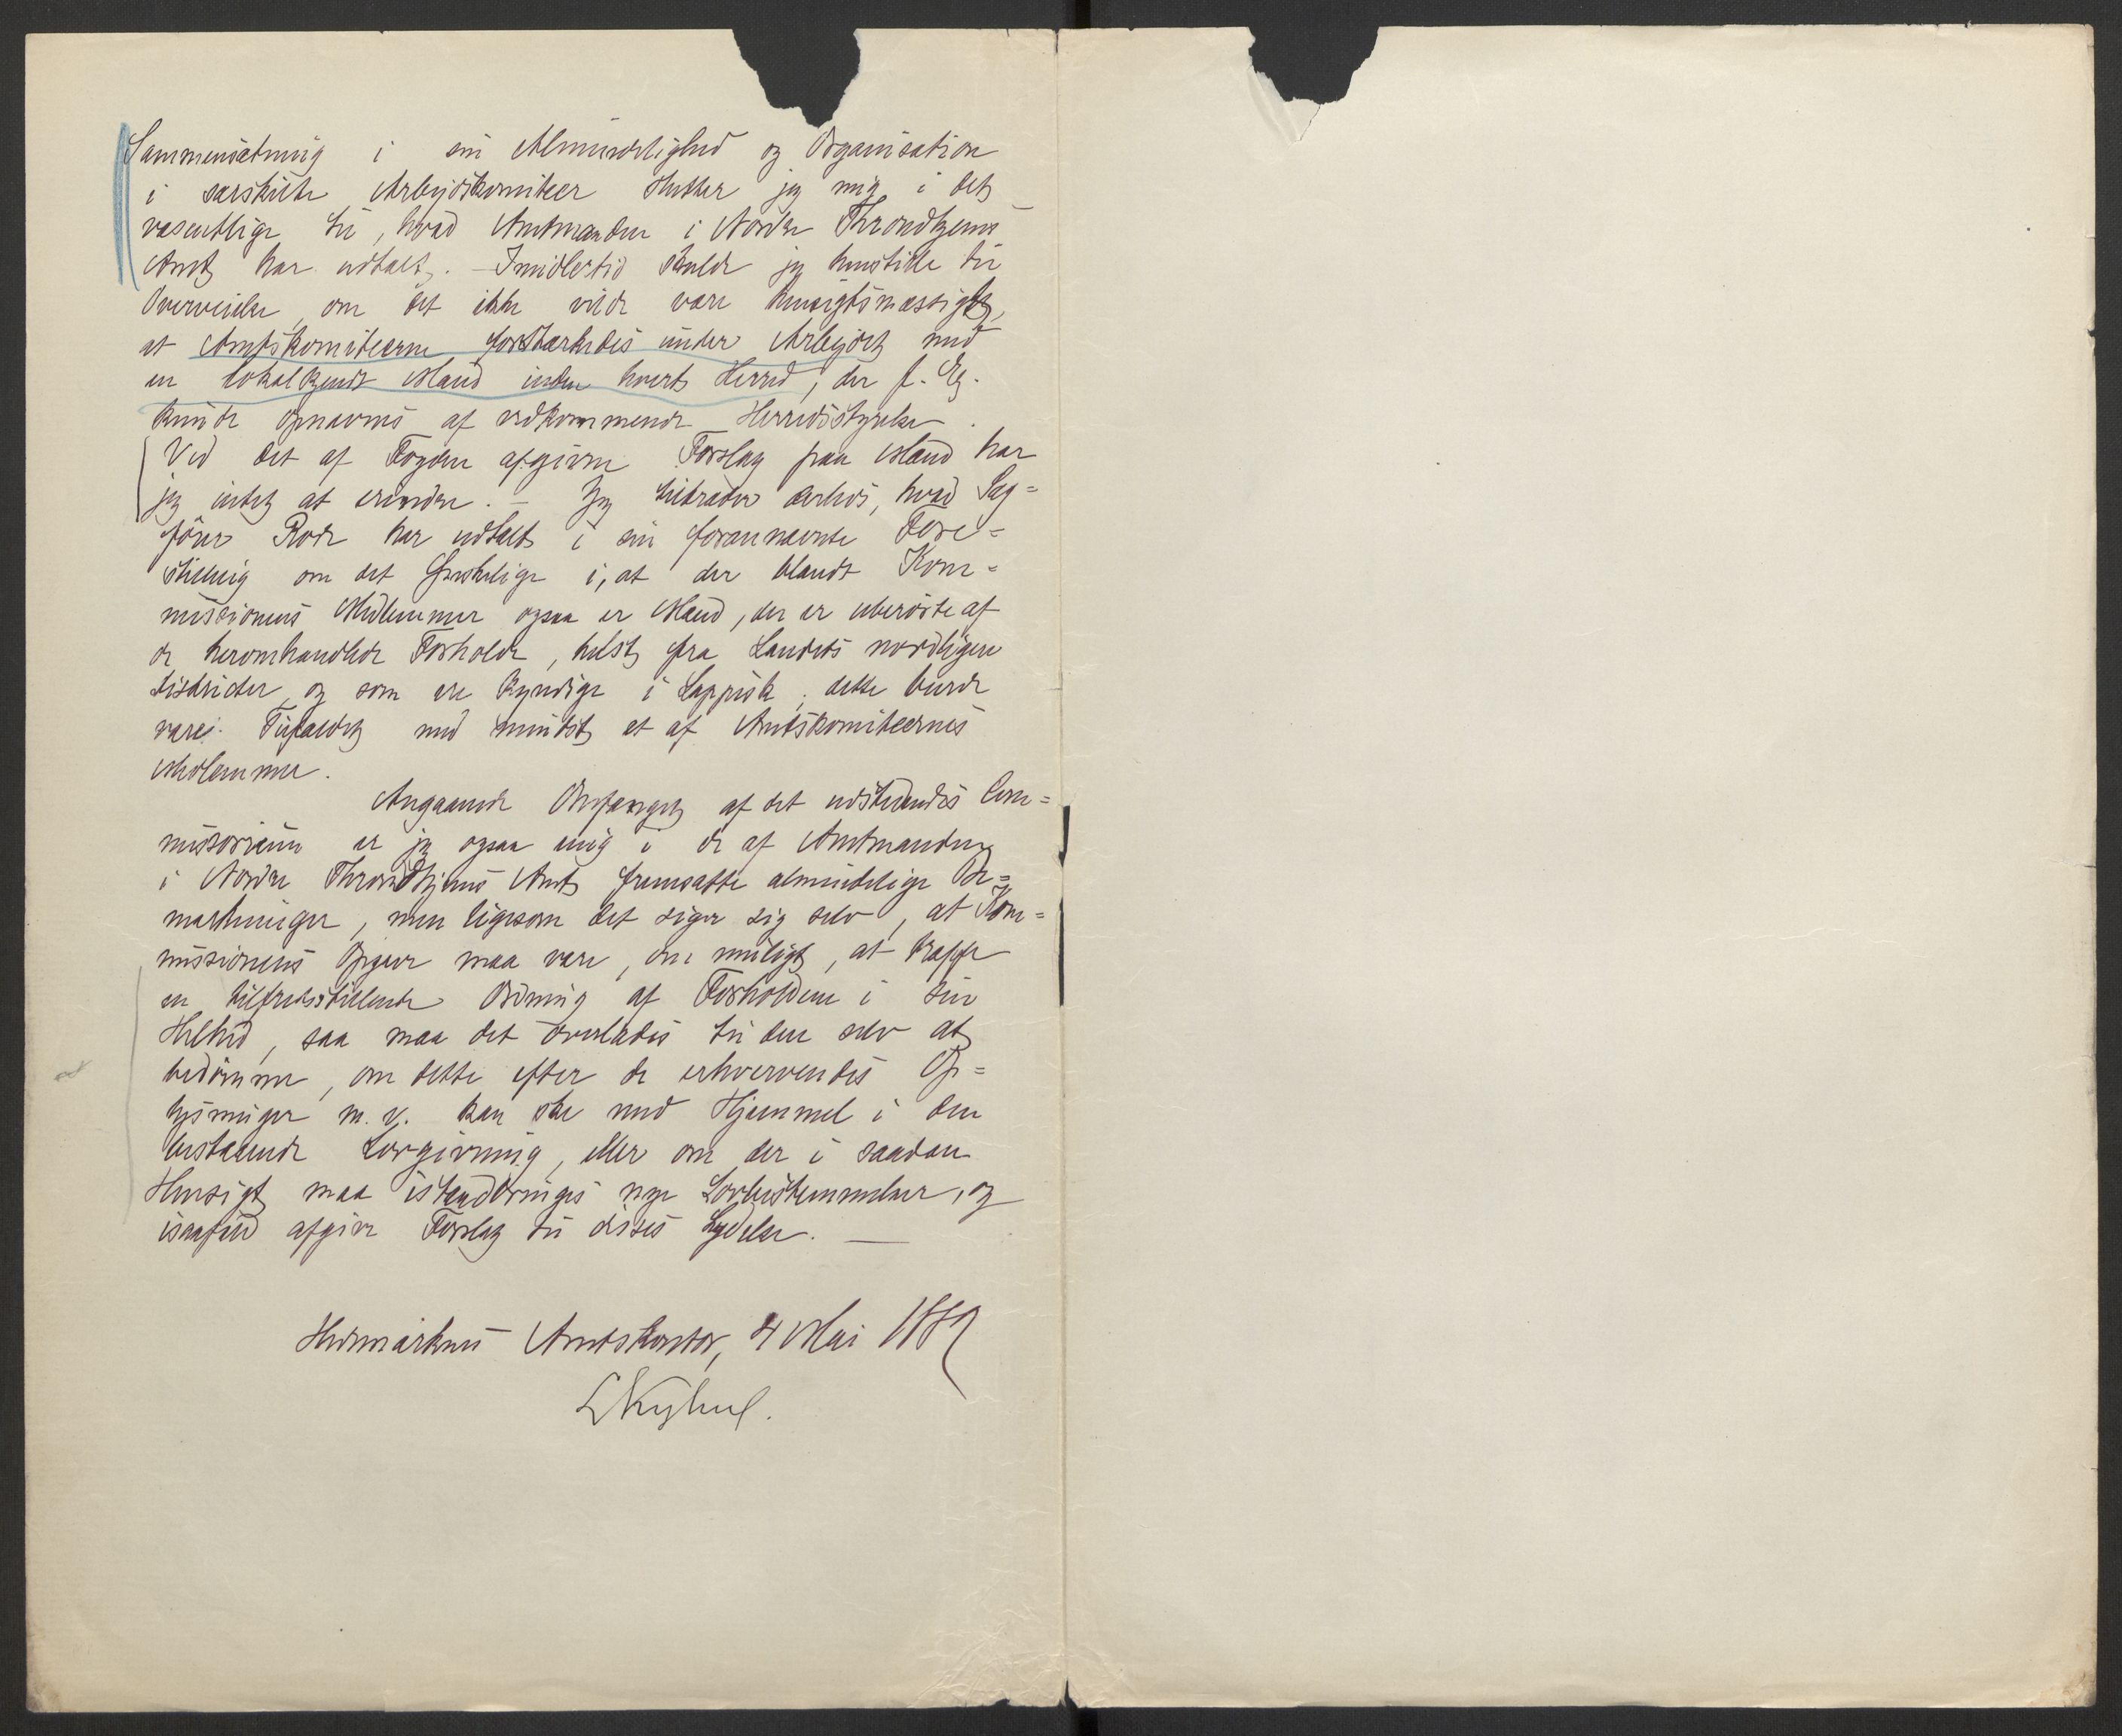 Sammensætning i sin Almindelighed og Organisation
i særskilte Arbejdskomiteer slutter jeg mig i det
væsentlige til, hvad Amtmanden i Nordre Throndhjems
Amt har udtalt. – Imidlertid skulde jeg henstille til
Overveielse, om det ikke vilde være hensigtsmæssigt,
at Amtskomiteerne forstærkedes under Arbejdet med
en lokalkjendt Mand inden hvert Herred, der f. Ex.
kunde opnævnes af vedkommende Herredsstyrelse.
Ved det af Fogden afgivne Forslag paa Mænd har
jeg intet at erindre. – Jeg tiltræder derhos, hvad Sag=
fører Rode har udtalt i sin forannævnte Fore=
stilling om det Ønskelige i, at der blandt Kom=
missionens Medlemmer ogsaa er Mænd, der er uberørte af
de heromhandlede Forholde, helst fra Landets nordligere
Districter, og som ere kyndige i Lappisk; dette burde
være Tilfældet med mindst et af Amtskomiteernes
Medlemmer.
Angaaende Omfanget af det udstedendes Com=
missorium er jeg ogsaa enig i de af Amtmanden
i Nordre Throndhjems Amt fremsatte almindelige Be=
mærkninger, men ligesom det siger sig selv, at Kom=
missionens Opgave maa være, om muligt, at træffe
en tilfredsstillende Ordning af Forholdene i sin
Helhed, saa maa det overlades til den selv at
bedømme, om dette efter de erhvervendes Op=
lysninger m. v. kan ske med Hjemmel i den
bestaaende Lovgivning, eller om der i saadan
Hensigt maa istandbringes nye Lovbestemmelser, og
isaafald afgive Forslag til disses Lydelse. —
Hedemarkens Amtskontor, 4 Mai 1889